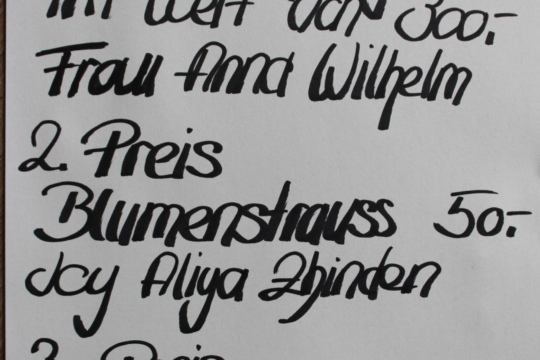 im Wert von 300.-
Frau Anna Wilhelm
2. Preis
Blumenstrauss 50.-
Joy Aliya Zbinden
3. Preis